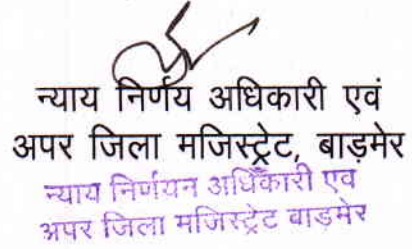 न्याय निर्णय अधिकारी एवं
अपर जिला मजिस्ट्रेट, बाड़मेर
न्याय निर्णयन अधिकारी एवं
अपर जिला मजिस्ट्रेट बाड़मेर